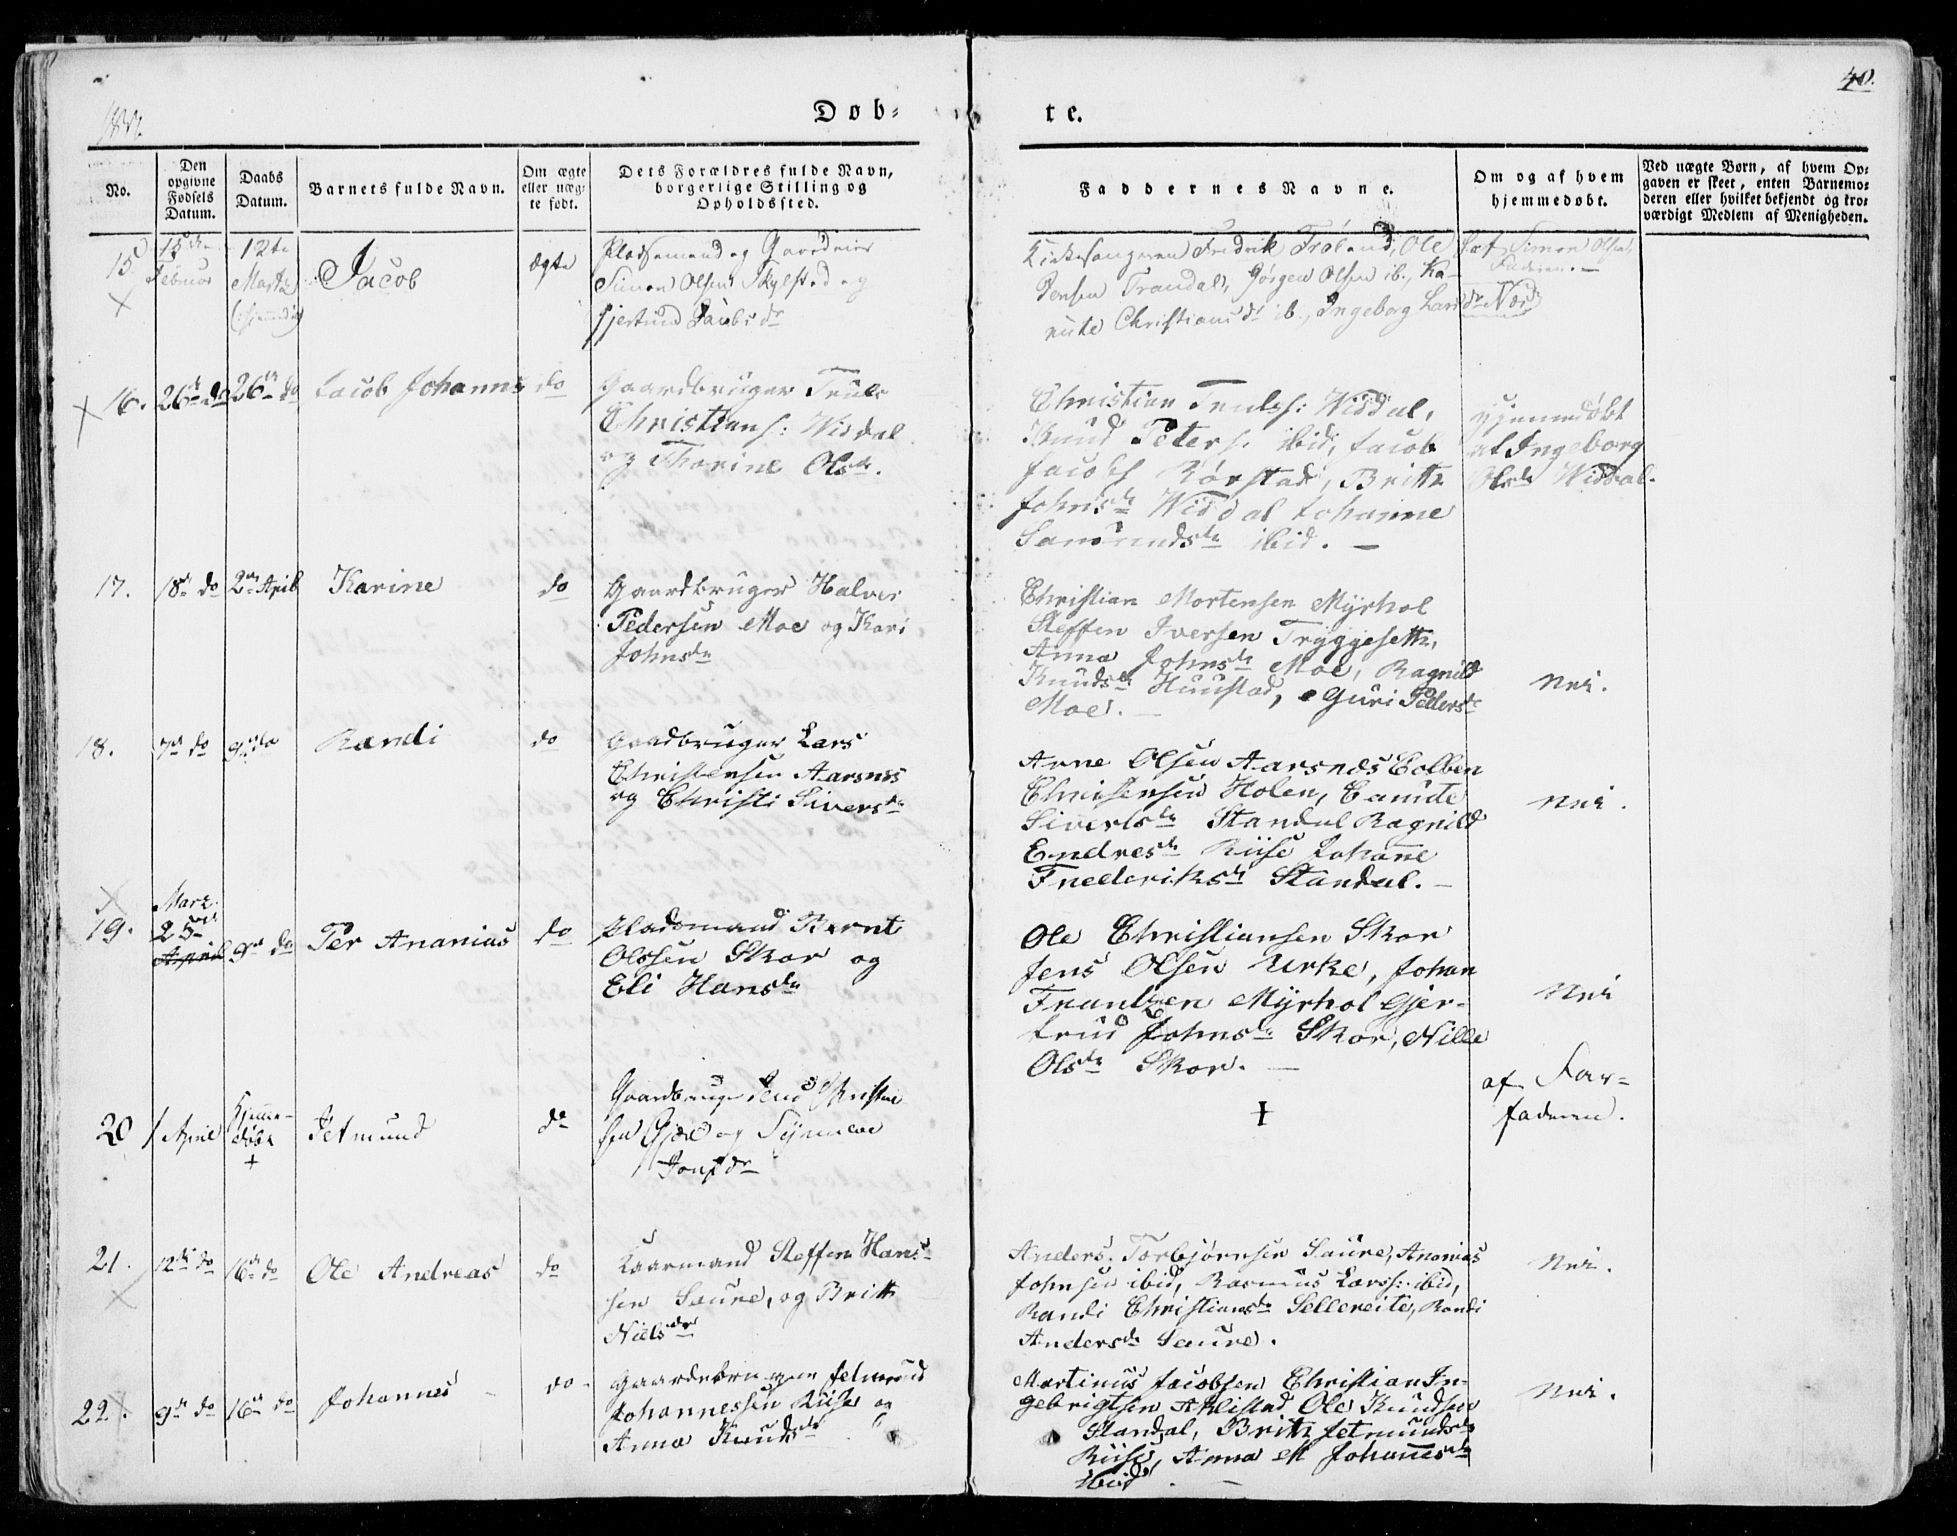 40.
Døb-
te.
No.
Den opgivne Fødsels Datum.
Daabs Datum.
Barnets fulde Navn.
Om ægte eller uægte født.
Dets Forældres fulde Navn, borgerlige Stilling og Opholdssted.
Faddernes Navne.
Om og af hvem hjemmedøbt.
Ved uægte Børn, af hvem Opgaven er skeet, enten Barnemoderen eller hvilket bekjendt og troværdigt Medlem af Menigheden.
15
Februar
12te
Jacob
ægte
Pladsemand og
Simon Olsen
Kirkesangeren Fredrik Ole
Jensen Trandal, Jørgen Olsen ib., Ka-
Christians dr ib., Ingeborg Lars dr
Simon Olsen,
Faderen.
16.
26de do
26de do
Jacob Johannes
do
Gaardbruger Truls
Christians: Widdal
og Thorine Olsdr.
Christian Truls: Widdal,
Knud Peters: ibid, Jacob
Jacobs Rørstad, Britte
Johnsdr Widdal Johanne
Samundsdr ibid. —
Hjemmedøbt
af Ingeborg
Olsdr Widdal.
17.
18de do
2den April
Karine
do
Gaardbruger Halvor
Pedersen Moe og Kari
Johnsdr
Christian Mortensen Myrhol
Steffen Iversen Tryggesette,
Anna Johnsdr Moe, Ragnild
Knudsdr Huustad, Guri Peders-
Moe. —
Nei.
18.
7de do
9de do
Randi
do
Gaardbruger Lars
Christensen Aarsnes
og Christi Siversdr
Arne Olsen Aarsnæs Colben
Christensen Holen,
Sivertsdr Standal Ragnild
Endresdr Riise Johanne
Frederiksdr Standal. —
Nei.
19.
Marz
25de
April
9de do
Per Ananias
do
Pladsmand Bernt
Olssen Skor og
Eli Hansdr
Ole Christiansen Skor
Jens Olsen Urke, Johan
Frantzen Myrhol Gjer-
trud Johnsdr Skor, Nille
Olsdr Skor. —
Nei
20
1 April
Hjemme-
døbt
+
Jetmund
do
Gaardbruger Knud Christen
sen og Synneve
Jonsdr
+
af Far-
faderen.
21.
12de do
16de do
Ole Andreas
do
Kaarmand Steffen Hans-
sen Saure, og Britte
Nielsdr
Anders Torbjørnsen Saure, Ananias
Johnsen ibid, Rasmus Larss: ibid,
Randi Christiansdr Sellereite, Randi
Andersdr Saure.
Nei.
22.
9de do
16de do
Johannes
do
Gaardebruger Jetmund
Johannessen Riise og
Anna Knudsdr
Martinus Jacobsen Christian In-
gebrigtsen Ahlistad Ole Knudsen
Standal, Britte Jetmundsdr
Riise, Anna M Johannesdr
ibid. —
Nei.